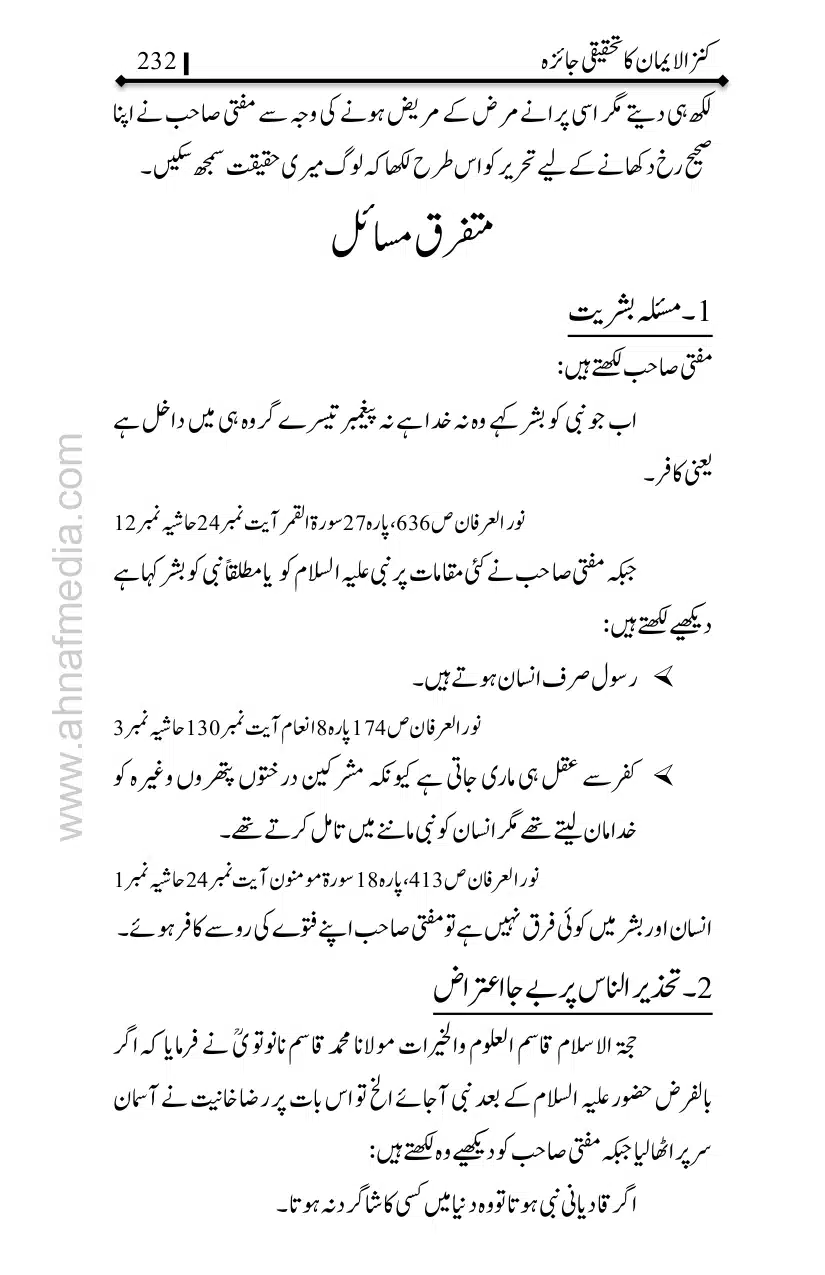 کنز الایمان کا تحقیقی جائزہ 232
لکھ ہی دیتے مگر اسی پرانے مرض کے مریض ہونے کی وجہ سے مفتی صاحب نے اپنا
صحیح رخ دکھانے کے لیے تحریر کو اس طرح لکھا کہ لوگ میری حقیقت سمجھ سکیں۔
متفرق مسائل
1۔ مسئلہ بشریت
مفتی صاحب لکھتے ہیں:
اب جو نبی کو بشر کہے وہ نہ خدا ہے نہ پیغمبر تیسرے گروہ ہی میں داخل ہے
یعنی کافر۔
نور العرفان ص636، پارہ27 سورۃ القمر آیت نمبر 24 حاشیہ نمبر 12
جبکہ مفتی صاحب نے کئی مقامات پر نبی علیہ السلام کو یا مطلقاً نبی کو بشر کہا ہے
دیکھیے لکھتے ہیں:
➢ رسول صرف انسان ہوتے ہیں۔
نور العرفان ص174 پارہ8 انعام آیت نمبر 130 حاشیہ نمبر 3
➢ کفر سے عقل ہی ماری جاتی ہے کیونکہ مشرکین درختوں پتھروں وغیرہ کو
خدا مان لیتے تھے مگر انسان کو نبی ماننے میں تامل کرتے تھے۔
نور العرفان ص413، پارہ18 سورۃ مومنون آیت نمبر 24 حاشیہ نمبر 1
انسان اور بشر میں کوئی فرق نہیں ہے تو مفتی صاحب اپنے فتوے کی رو سے کافر ہوئے۔
2۔ تحذیر الناس پر بے جا اعتراض
حجۃ الاسلام قاسم العلوم والخیرات مولانا محمد قاسم نانوتویؒ نے فرمایا کہ اگر
بالفرض حضور علیہ السلام کے بعد نبی آجائے الخ تو اس بات پر رضاخانیت نے آسمان
سر پر اٹھا لیا جبکہ مفتی صاحب کو دیکھیے وہ لکھتے ہیں:
اگر قادیانی نبی ہوتا تو وہ دنیا میں کسی کا شاگرد نہ ہوتا۔
www.ahnafmedia.com